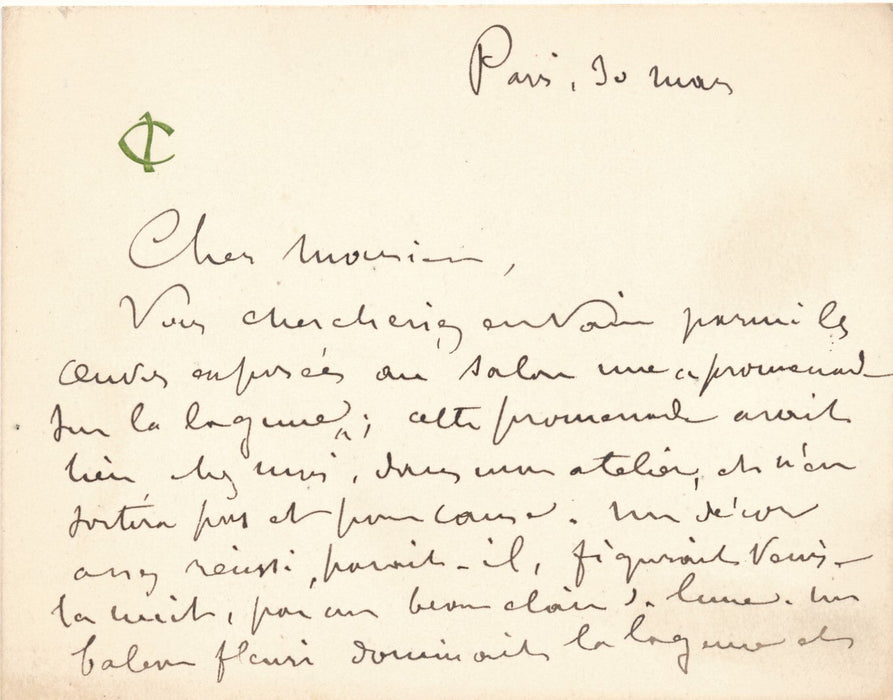 Paris, 30 mars
Cher Monsieur,
Vous chercheriez en vain parmi les
œuvres exposées au salon une "promenade
sur la lagune"; cette promenade avait
lieu chez moi, dans mon atelier, et n'en
sortira pas et pour cause. Un décor
assez réussi, paraît-il, figurait Venise
la nuit, par un beau clair de lune. Un
balcon fleuri dominait la lagune et